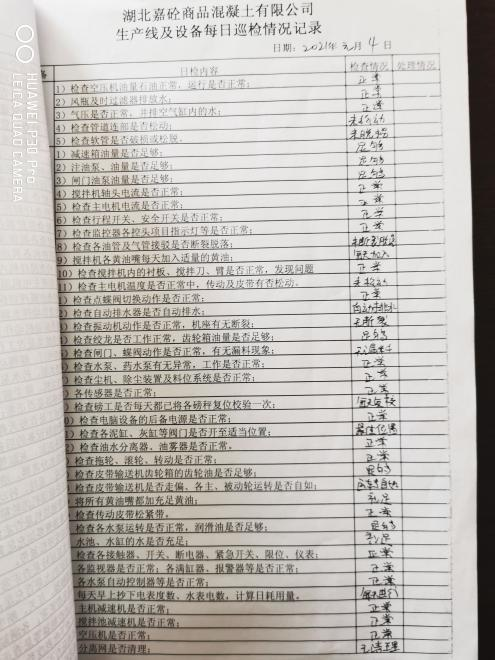 湖北嘉砼商品混凝土有限公司
生产线及设备每日巡检情况记录
日期: 2021年 3月 4日
备 日检内容 检查情况 处理情况
1) 检查空压机油量石油正常，运行是否正常; 正常
2) 风瓶及时过滤器排放水; 正常
3) 气压是否正常，并排空气缸内的水; 正常
4) 检查管道连部是否松动; 未松动
5) 检查软管是否破损或松脱。 未脱落
1) 减速箱油量是否足够; 足够
2) 注油泵、油量是否足够; 足够
3) 闸门油泵油量是否足够; 足够
4) 搅拌机轴头电流是否正常; 正常
5) 检查主电机电流是否正常; 正常
6) 检查行程开关、安全开关是否正常; 正常
7) 检查监控器各控头项目指示灯等是否正常; 正常
8) 检查各油管及气管接驳是否断裂脱落;
9) 搅拌机各黄油嘴每天加入适量的黄油; 每天加入
10) 检查搅拌机内的衬板、搅拌刀、臂是否正常，发现问题 正常
11) 检查主电机温度是否正常中，传动及皮带有否松动。 未松动
) 检查点蝶阀切换动作是否正常; 正常
) 检查自动排水器是否自动排水; 自动排水
) 检查振动机动作是否正常，机座有无断裂; 无断裂
) 检查绞龙是否工作正常，齿轮箱油量是否足够; 足够
) 检查闸门、蝶阀动作是否正常，有无漏料现象; 无漏料
) 检查水泵、药水泵有无异常，工作是否正常; 正常
) 检查尘机、除尘装置及料位系统是否正常; 正常
) 各传感器是否正常; 正常
) 检查磅工是否每天都已将各磅秤复位校验一次;
) 检查电脑设备的后备电源是否正常; 正常
) 检查各泥缸、灰缸等阀门是否开至适当位置;
) 检查油水分离器、油雾器是否正常。 正常
) 检查拖轮、滚轮、转动是否正常; 正常
) 检查皮带输送机齿轮箱的齿轮油是否足够; 足够
检查皮带输送机是否走偏、各主、被动轮运转是否自如;
将所有黄油嘴都加充足黄油; 充足
检查传动皮带松紧带。 正常
检查各水泵运转是否正常，润滑油是否足够; 足够
水池、水缸的水是否充足; 充足
检查各接触器、开关、断电器、紧急开关、限位、仪表; 正常
各监视器是否正常; 各满缸器、报警器等是否正常; 正常
各水泵自动控制器等是否正常; 正常
每天早上抄下电表度数、水表电数，计算日耗用量。 每天进行
主机减速机是否正常; 正常
搅拌池减速机是否正常; 正常
空压机是否正常; 正常
分离网是否清理; 无清理
HUAWEI P30 Pro
LEICA QUAD CAMERA